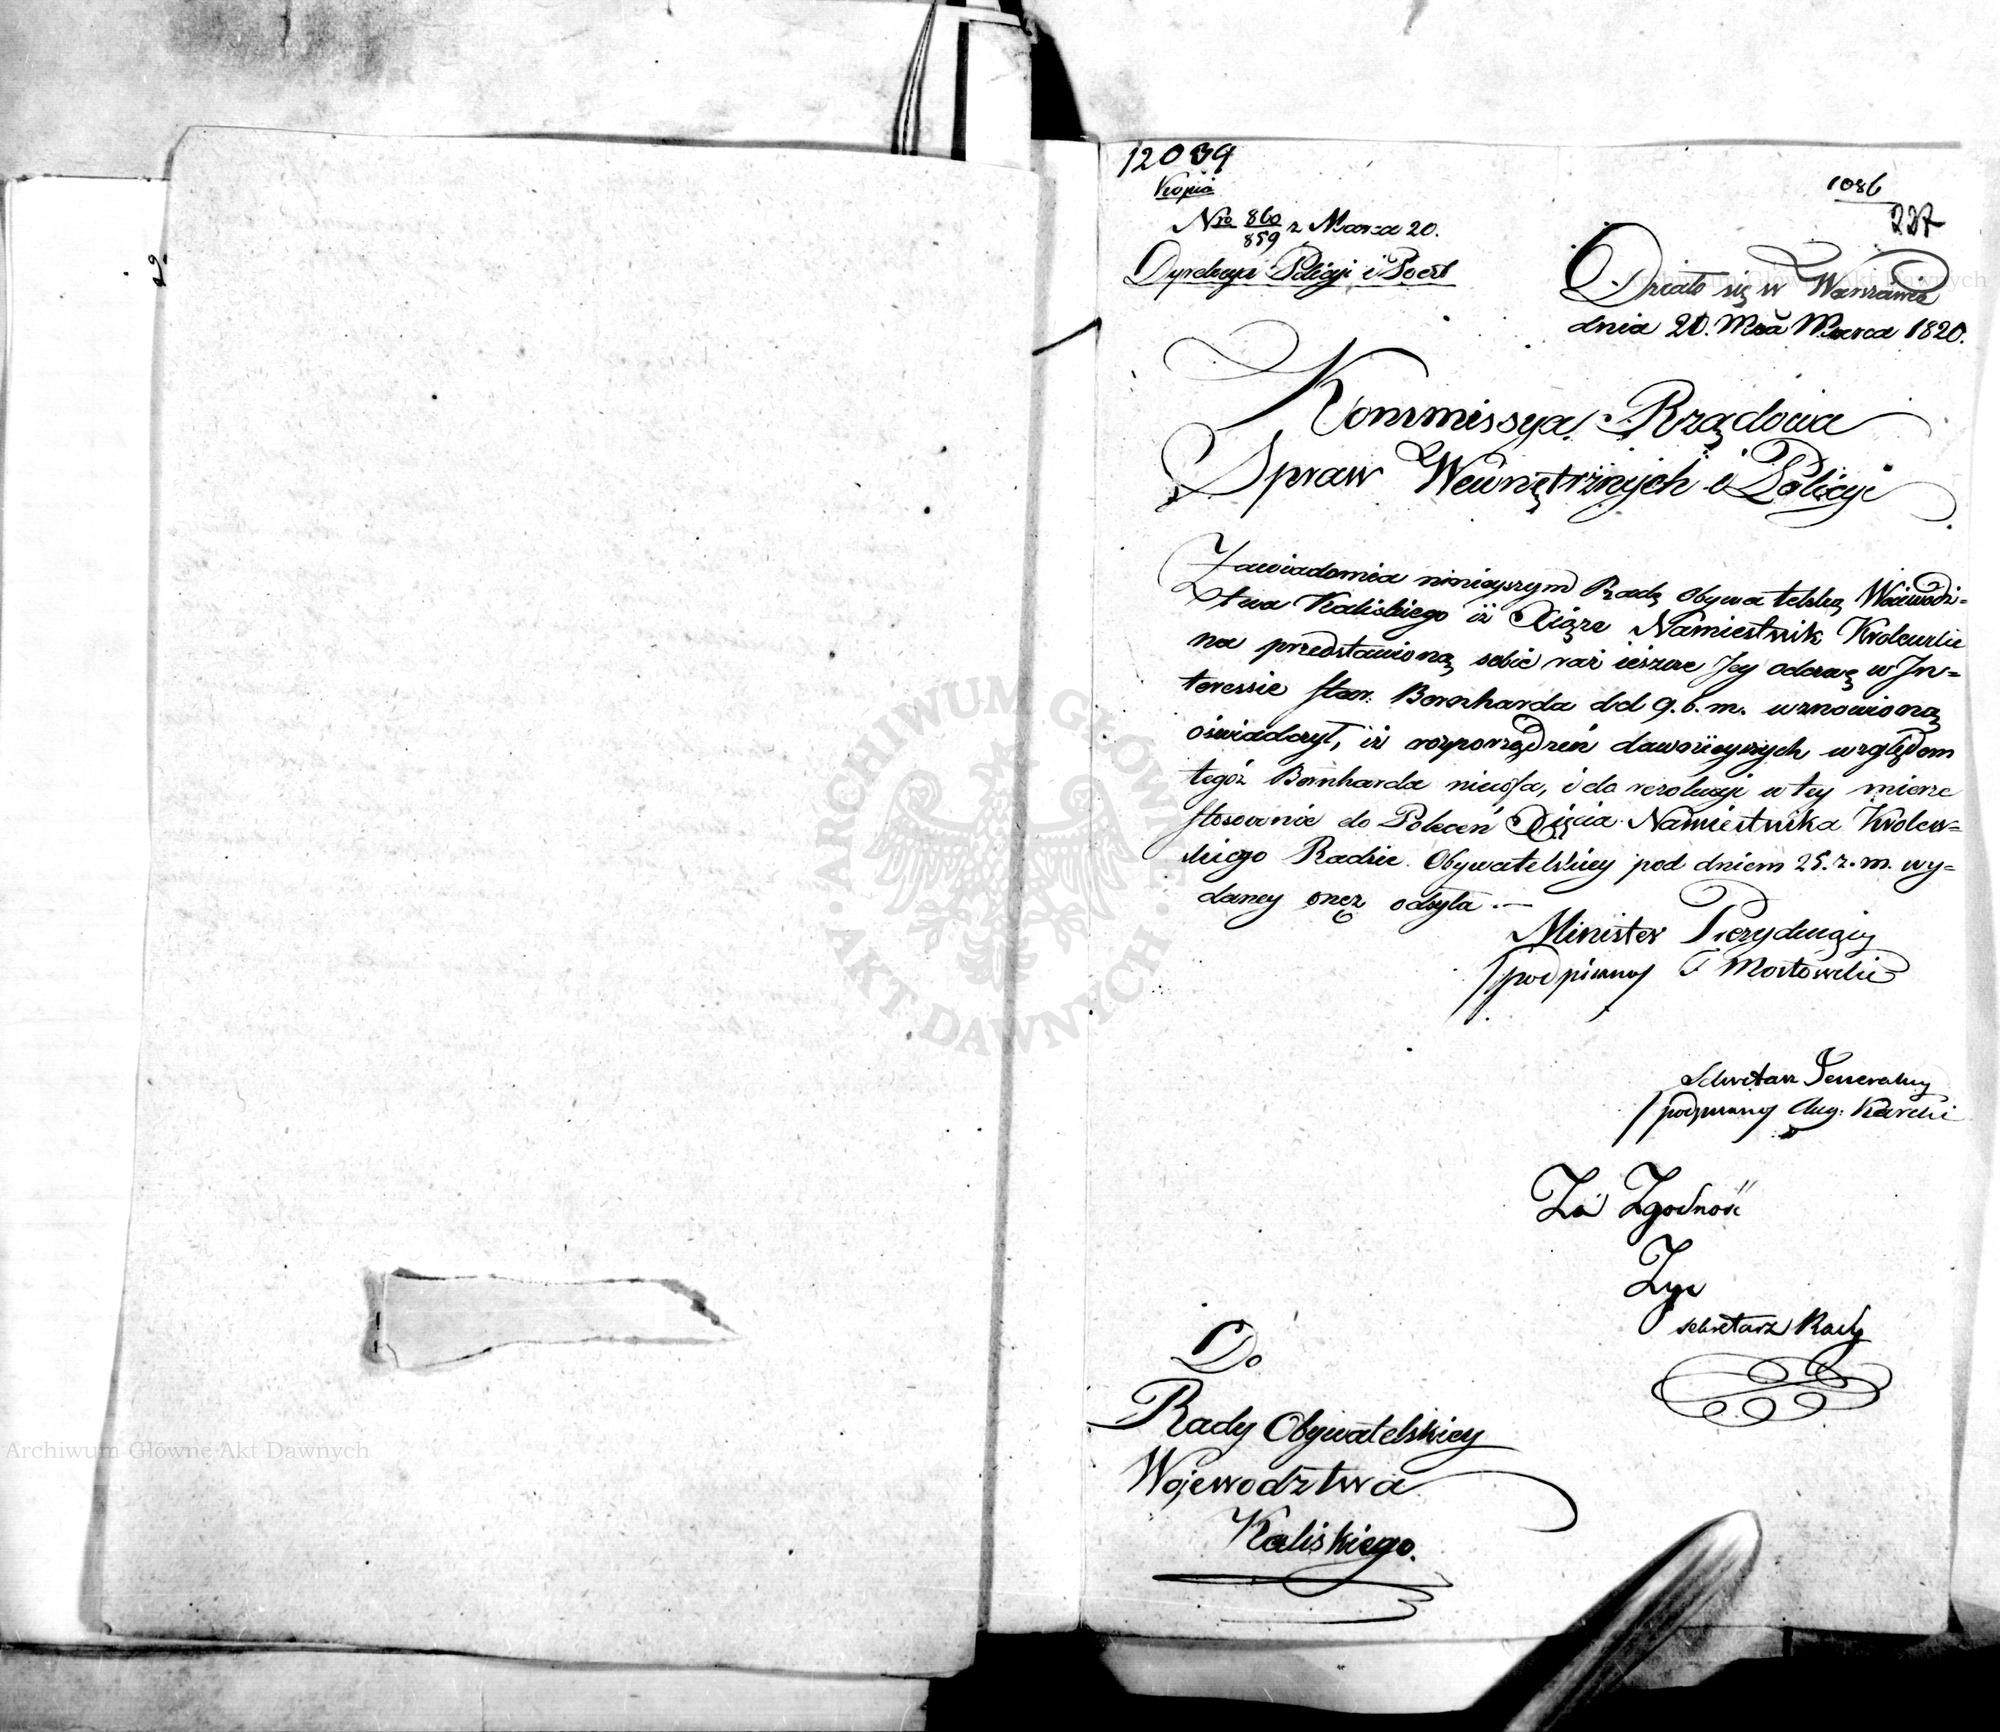 12039
Kopia
1086
227
Nro 860/859 z Marca 20.
Dyrekcya Policyi i Poczt
Działo się w Warszawie
dnia 20. Mca Marca 1820.
Kommissya Rządowa
Spraw Wewnętrznych i Policyi
Zawiadomia ninieyszym Radę Obywatelską Wojewódz=
twa Kaliskiego iż Xiąże Namiestnik Krolewski
na przedstawioną sobie raz ieszcze Jey odezwę w In=
teressie Star. Bernharda dd 9. b. m. wznowioną
oświadczył, iż rozporządzeń dawnieyszych względem
tegoż Bernharda niecofa, i do rezolucyi w tey mierze
stosownie do Poleceń Xięcia Namiestnika Krolew=
skiego Radzie Obywatelskiey pod dniem 25. z. m. wy=
daney onęż odsyła.—
Minister Prezyduiący
/podpisany/ T Mostowski
Sekretarz Jeneralny
/podpisany/ Aug. Karski
Za Zgodność
Zyc
sekretarz Rady
Do
Rady Obywatelskiey
Wojewodztwa
Kaliskiego.
Archiwum Główne Akt Dawnych
ARCHIWUM GŁÓWNE AKT DAWNYCH
Archiwum Główne Akt Dawnych